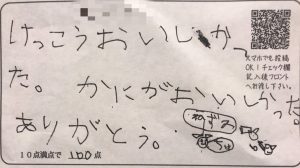 けっこうおいしかっ
た。かにがおいしかった
ありがとう。
ねずみ
スマホでも投稿
OK！チェック欄
記入後フロント
へお渡し下さい。
10点満点で 100 点